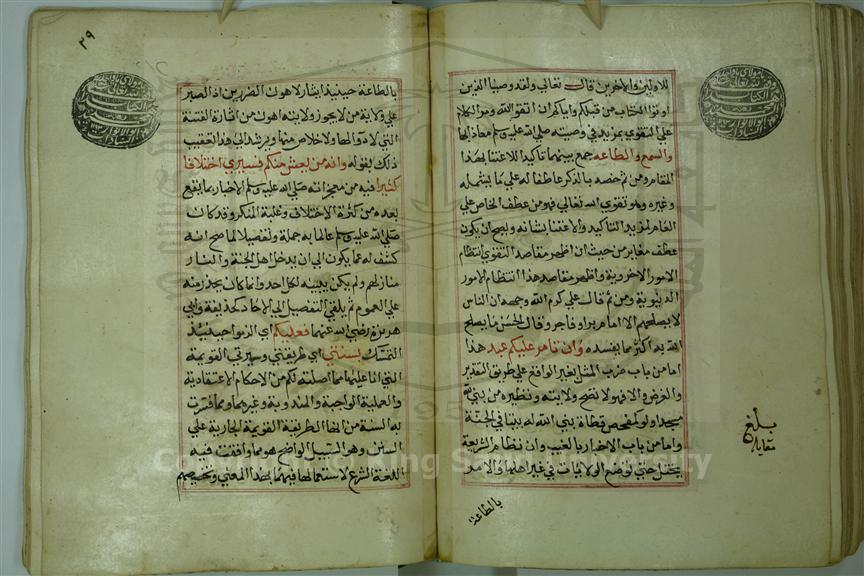 للاولين والاخرين قال تعالي ولقد وصينا الذين
اوتوا الكتاب من قبلكم واياكم ان اتقوا الله ومر الكلام
علي التقوي بمزيد في وصيته صلي الله عليه وسلم معاذ بها
والسمع والطاعه جمع بينهما تاكيدا للاعتنا بهذا
المقام ومن ثم خصه بالذكر عاطفا له علي ما يشمله
وغيره وهو تقوي الله تعالي فهو من عطف الخاص علي
العام لمزيد التاكيد والاعتنا بشانه ويصح ان يكون
عطف مغاير من حيث ان اظهر مقاصد التقوي انتظام
الامور الاخروية واظهر مقاصد هذا انتظام الامور
الدنيوية ومن ثم قال علي كرم الله وجهه ان الناس
لا يصلحهم الا امام بر او فاجر وقال الحسن ما يصلح
الله به اكثر مما يفسده وان تامر عليكم عبد هذا
اما من باب ضرب المثل بغير الواقع علي طريق التقدير
والفرض والا فهو لا تصح ولايته ونظيره من بني لله
مسجدا ولو كمفحص قطاة بني الله له بيتا في الجنة
واما من باب الاخبار بالغيب وان نظام الشريعة
يختل حتي توضع الولايات في غير اهلها والامر
بالطاعة
بلغ
مقابلة
٢٩
بالطاعة حينيذ ايثار لاهون الضررين اذ الصبر
علي ولاية من لا يجوز ولايته اهون من اثارة الفتنة
التي لا دوا لها ولا خلاص منها ويرشد الي هذا تعقيب
ذلك بقوله وانه من يعش منكم فسيري اختلافا
كثيرا فيه من معجزاته صلي الله عليه وسلم الاخبار بما يقع
بعده من كثرة الاختلاف وغلبة المنكر وقد كان
صلي الله عليه وسلم عالما به جملة وتفصيلا لما صح انه
كشف له عما يكون الي ان يدخل اهل الجنة والنار
منازلهم ولم يكن يبينه لكل احد وانما كان يحذر منه
علي العموم ثم يلقي التفصيل الي الاحاد كحذيفة وابي
هريرة رضي الله عنهما فعليكم اي الزموا حينيذ
التمسك بسنتي اي طريقتي وسيرتي القويمة
التي انا عليها مما اصلته لكم من الاحكام الاعتقادية
والعملية الواجبة والمندوبة وغيرهما وما فسرت
به السنة من انها الطريقة القويمة الجارية علي
السنن وهو السبيل الواضح هو ما وافقت فيه
اللغة الشرع لاستعمالها فيهما بهذا المعني وتخصيصهم